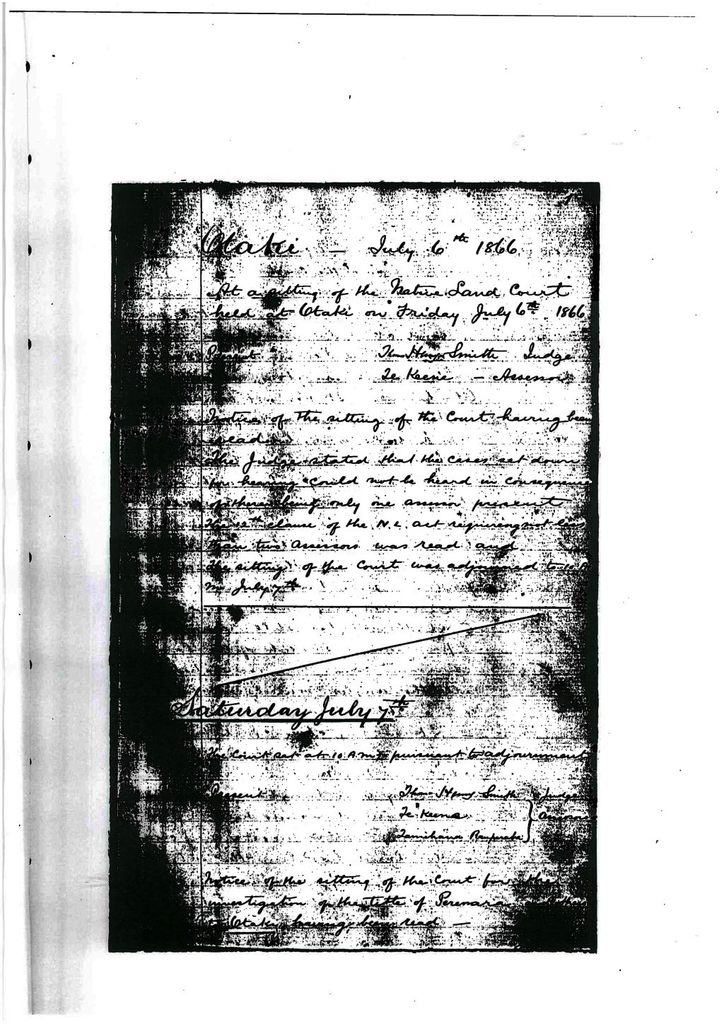 Otaki — July 6th 1866
At a sitting of the Native Land Court
held at Otaki on Friday July 6th 1866
Present Thos Henry Smith Judge
Te Keene — Assessor
Notice of the sitting of the Court having been
read
The Judge stated that the cases set down
for hearing could not be heard in consequence
of there being only one assessor present
The clause of the N. L. act requiring not less
than two assessors was read and
the sitting of the Court was adjourned to 10 A
M July 7th
Saturday July 7th
The Court sat at 10 A.M. pursuant to adjournment
Present Thos Henry Smith Judge
Te Keene
Tamihana Rauparaha
Notice of the sitting of the Court for the
investigation of the title of
to Otaki having been read —